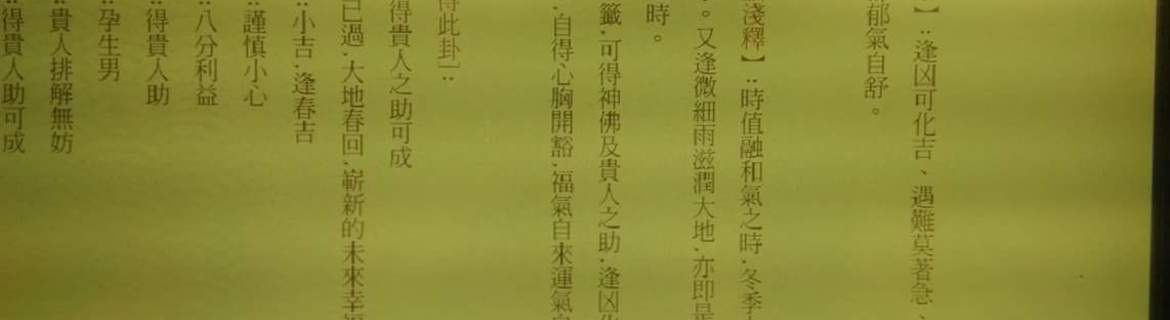 】：逢凶可化吉、遇難莫著急、
郁氣自舒。
淺釋】：時值融和氣之時，冬季
。又逢微細雨滋潤大地，亦即是
時。
籤，可得神佛及貴人之助，逢凶化
，自得心胸開豁，福氣自來運氣自
得此卦一：
得貴人之助可成
已過，大地春回，嶄新的未來幸福
：小吉，逢春吉
：謹慎小心
：八分利益
：得貴人助
：孕生男
：貴人排解無妨
：得貴人助可成